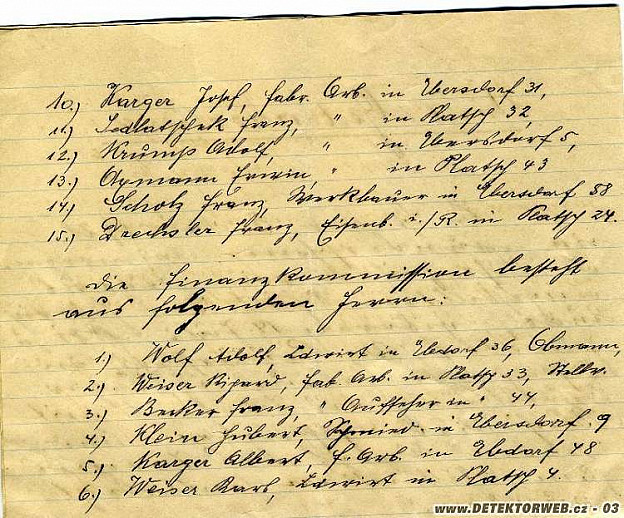 10.) Karger Josef, fabr. Arb. in Ebersdorf 31,
11.) Sedlatschek Franz, " in Platsch 32,
12.) Krumps Adolf, " in Ebersdorf 5,
13.) Aymann Erwin, " in Platsch 43
14.) Scholz Franz, Werkbauer in Ebersdorf 58
15.) Drechsler Franz, Eisenb. i./R. in Platsch 24.
Die Finanzkommission besteht
aus folgenden Herrn:
1.) Wolf Adolf, Ldwirt in Ebdorf 36, Obmann,
2.) Weiser Rihard, fab. Arb. in Platsch 33, Stellv.
3.) Becker Franz, " Aufseher in " 44,
4.) Klein Hubert, Schmied in Ebersdorf 9
5.) Karger Albert, f. Arb. in Ebdorf 48
6.) Weiser Karl, Ldwirt in Platsch 4.
www.DETEKTORWEB.cz - 03